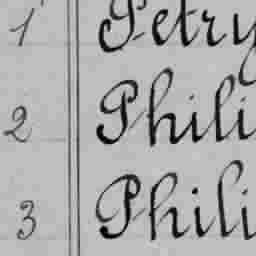 1 Petry
2 Phili
3 Phili